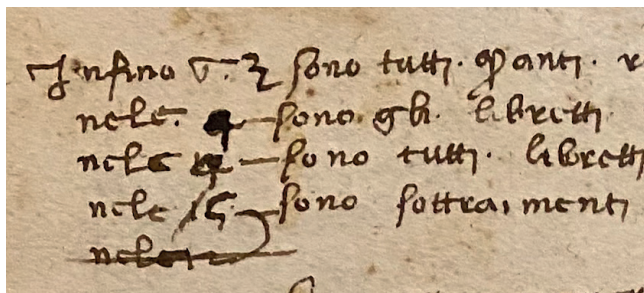 Infino sono tutti. quanti.
nele. sono gli. libretti
nele sono tutti. libretti
nele 15 sono sottraimenti
nele